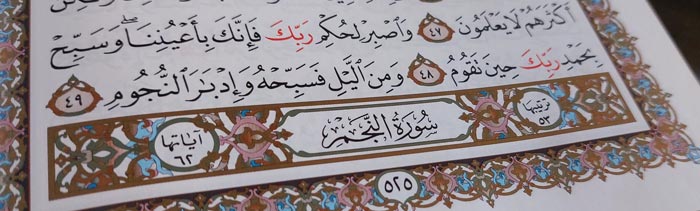 أَكْثَرَهُمْ لَا يَعْلَمُونَ ٤٧ وَاصْبِرْ لِحُكْمِ رَبِّكَ فَإِنَّكَ بِأَعْيُنِنَا ۖ وَسَبِّحْ
بِحَمْدِ رَبِّكَ حِينَ تَقُومُ ٤٨ وَمِنَ اللَّيْلِ فَسَبِّحْهُ وَإِدْبَارَ النُّجُومِ ٤٩
ترتيبها ٥٣ سُورَةُ النَّجْمِ آياتها ٦٢
٥٢٥